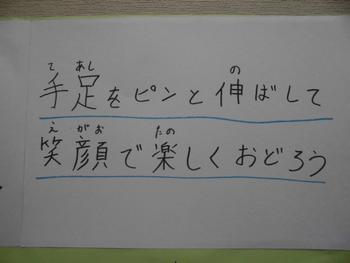 てあし の
手足をピンと伸ばして
えがお たの
笑顔で楽しくおどろう